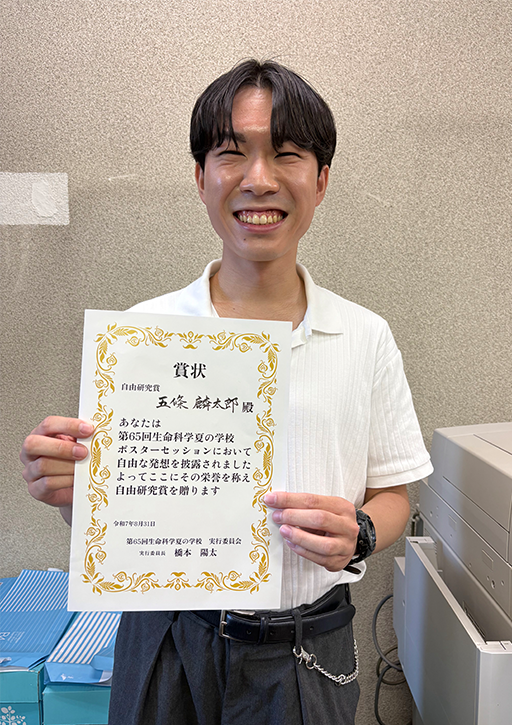 賞状
自由研究賞
五條 麟太郎 殿
あなたは
第65回生命科学夏の学校
ポスターセッションにおいて
自由な発想を披露されました
よってここにその栄誉を称え
自由研究賞を贈ります
令和7年8月31日
第65回生命科学夏の学校 実行委員会
実行委員長 橋本 陽太